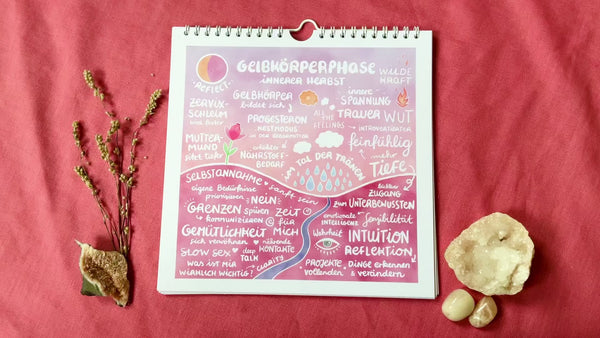 GELBKÖRPERPHASE
INNERER HERBST
REFLECT
WILDE
KRAFT
ZERVIX-
SCHLEIM
GELBKÖRPER
bildet sich
innere
SPANNUNG
TRAUER WUT
ALL THE
FEELINGS
PROGESTERON
NESTMODUS
INTROVERTIERTER
feinfühlig
MUTTER-
MUND
sitzt tiefer
erhöhter
NÄHRSTOFF-
BEDARF
IM TAL DER TRÄNEN
mehr
TIEFE
SELBSTANNAHME
sanft sein
eigene Bedürfnisse
priorisieren
NEIN
GRENZEN spüren
kommunizieren
ZEIT
für
MICH
GEMÜTLICHKEIT
sich verwöhnen
nährende
KONTAKTE
SLOW SEX
deep
TALK
WAS IST MIR
WIRKLICH WICHTIG?
CLARITY
leichter
ZUGANG
zum UNTERBEWUSSTEN
emotionale
INTELLIGENZ
Sensibilität
Wahrheit
INTUITION
REFLEKTION
PROJEKTE
vollenden
DINGE erkennen
& verändern